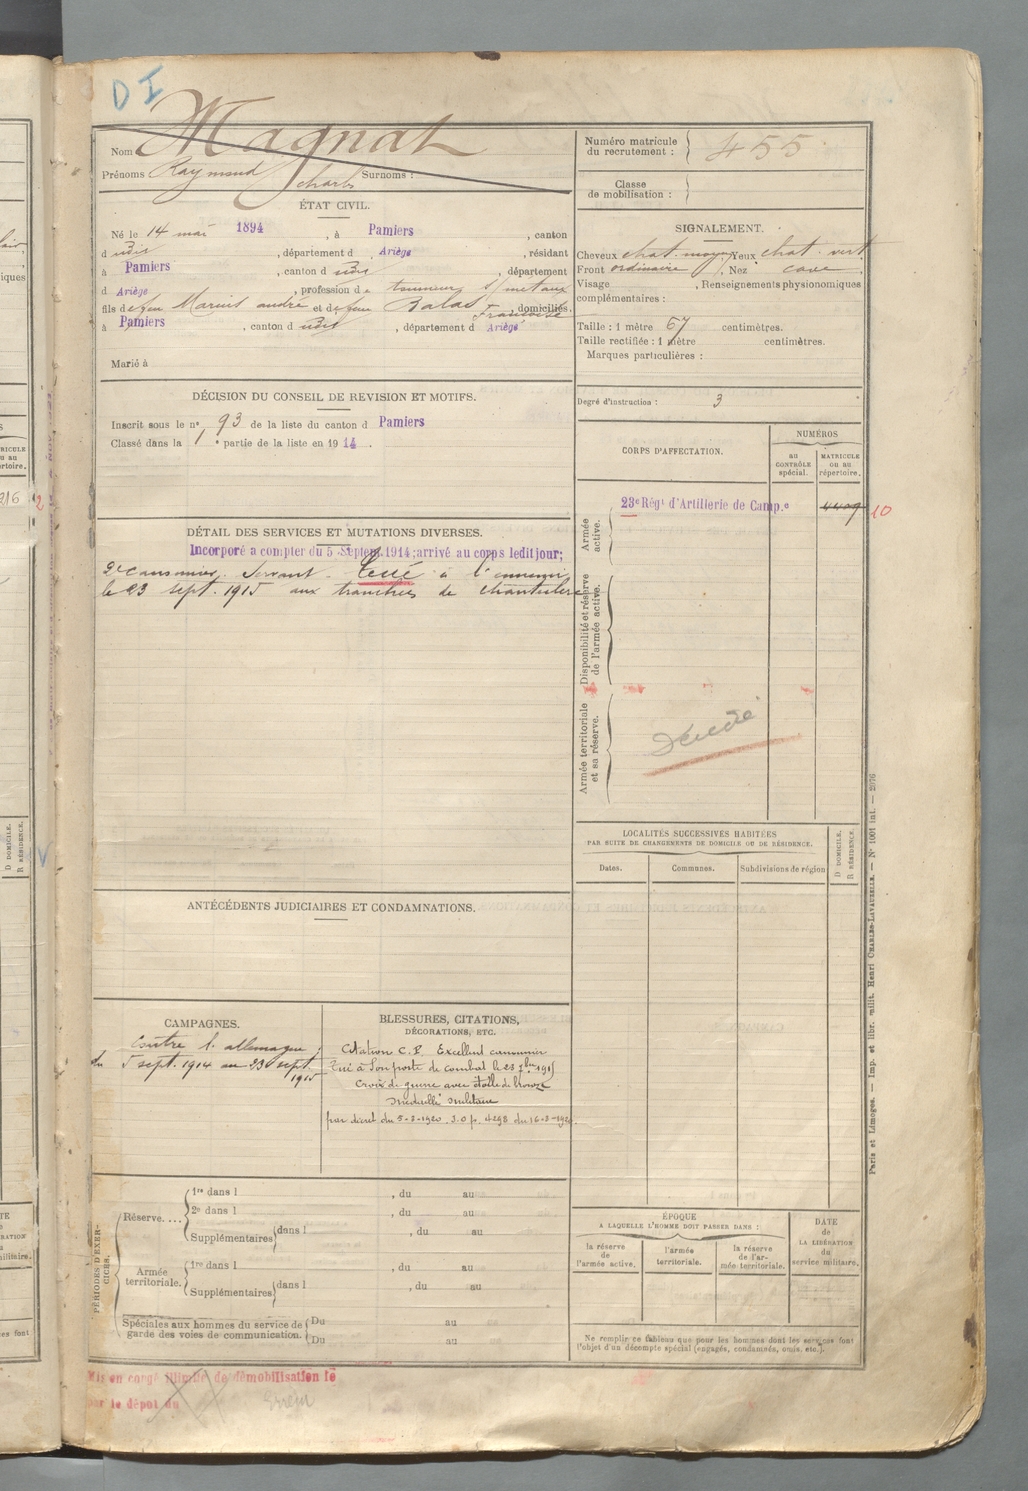 D I
Nom Magnat
Prénoms Raymond Charles Surnoms :
Numéro matricule
du recrutement : 455
Classe
de mobilisation :
ÉTAT CIVIL.
Né le 14 mai 1894, à Pamiers, canton
d udit, département d Ariège, résidant
à Pamiers, canton d udit, département
d Ariège, profession de tourneur s/ métaux
fils de feu Marius andré et de feu Balas Françoise, domiciliés
à Pamiers, canton d udit, département d Ariège
Marié à
SIGNALEMENT.
Cheveux chat. moyen Yeux chat. vert
Front ordinaire, Nez cave.
Visage , Renseignements physionomiques
complémentaires :
Taille : 1 mètre 67 centimètres.
Taille rectifiée : 1 mètre centimètres.
Marques particulières :
Degré d'instruction : 3
DÉCISION DU CONSEIL DE REVISION ET MOTIFS.
Inscrit sous le n° 93 de la liste du canton d Pamiers
Classé dans la 1e partie de la liste en 1914.
DÉTAIL DES SERVICES ET MUTATIONS DIVERSES.
Incorporé a compter du 5 Septem. 1914; arrivé au corps ledit jour;
2e canonnier servant. Tué à l'ennemi
le 23 sept. 1915 aux tranchées de Chantecler
CORPS D'AFFECTATION.
NUMÉROS
au
CONTRÔLE
spécial.
MATRICULE
ou au
répertoire.
Armée
active.
23e Régt d'Artillerie de Camp.e 4409 10
Disponibilité et réserve
de l'armée active.
Armée territoriale
et sa réserve.
Décédé
LOCALITÉS SUCCESSIVES HABITÉES
PAR SUITE DE CHANGEMENTS DE DOMICILE OU DE RÉSIDENCE.
Dates.
Communes.
Subdivisions de région
D DOMICILE.
R RÉSIDENCE.
ANTÉCÉDENTS JUDICIAIRES ET CONDAMNATIONS.
CAMPAGNES.
Contre l'allemagne,
du 5 sept. 1914 au 23 sept.
1915
BLESSURES, CITATIONS,
DÉCORATIONS, ETC.
Citation C.P. Excellent canonnier
Tué à son poste de combat le 23 7bre 1915
Croix de guerre avec étoile de bronze
Médaille militaire
par décret du 5-2-1920 J.O p. 4298 du 16-3-1920.
PÉRIODES D'EXER-
CICES.
Réserve....
1re dans l , du au
2e dans l , du au
Supplémentaires dans l , du au
Armée
territoriale.
1re dans l , du au
Supplémentaires dans l , du au
Spéciales aux hommes du service de
garde des voies de communication.
Du au
Du au
ÉPOQUE
A LAQUELLE L'HOMME DOIT PASSER DANS :
la réserve
de
l'armée active.
l'armée
territoriale.
la réserve
de l'ar-
mée territoriale.
DATE
de
LA LIBÉRATION
du
service militaire.
Ne remplir ce tableau que pour les hommes dont les services font
l'objet d'un décompte spécial (engagés, condamnés, omis, etc.).
Mis en congé illimité de démobilisation le
par le dépôt du
Erreur
Paris et Limoges. — Imp. et libr. milit. Henri CHARLES-LAVAUZELLE. — N° 1001 int. — 2076